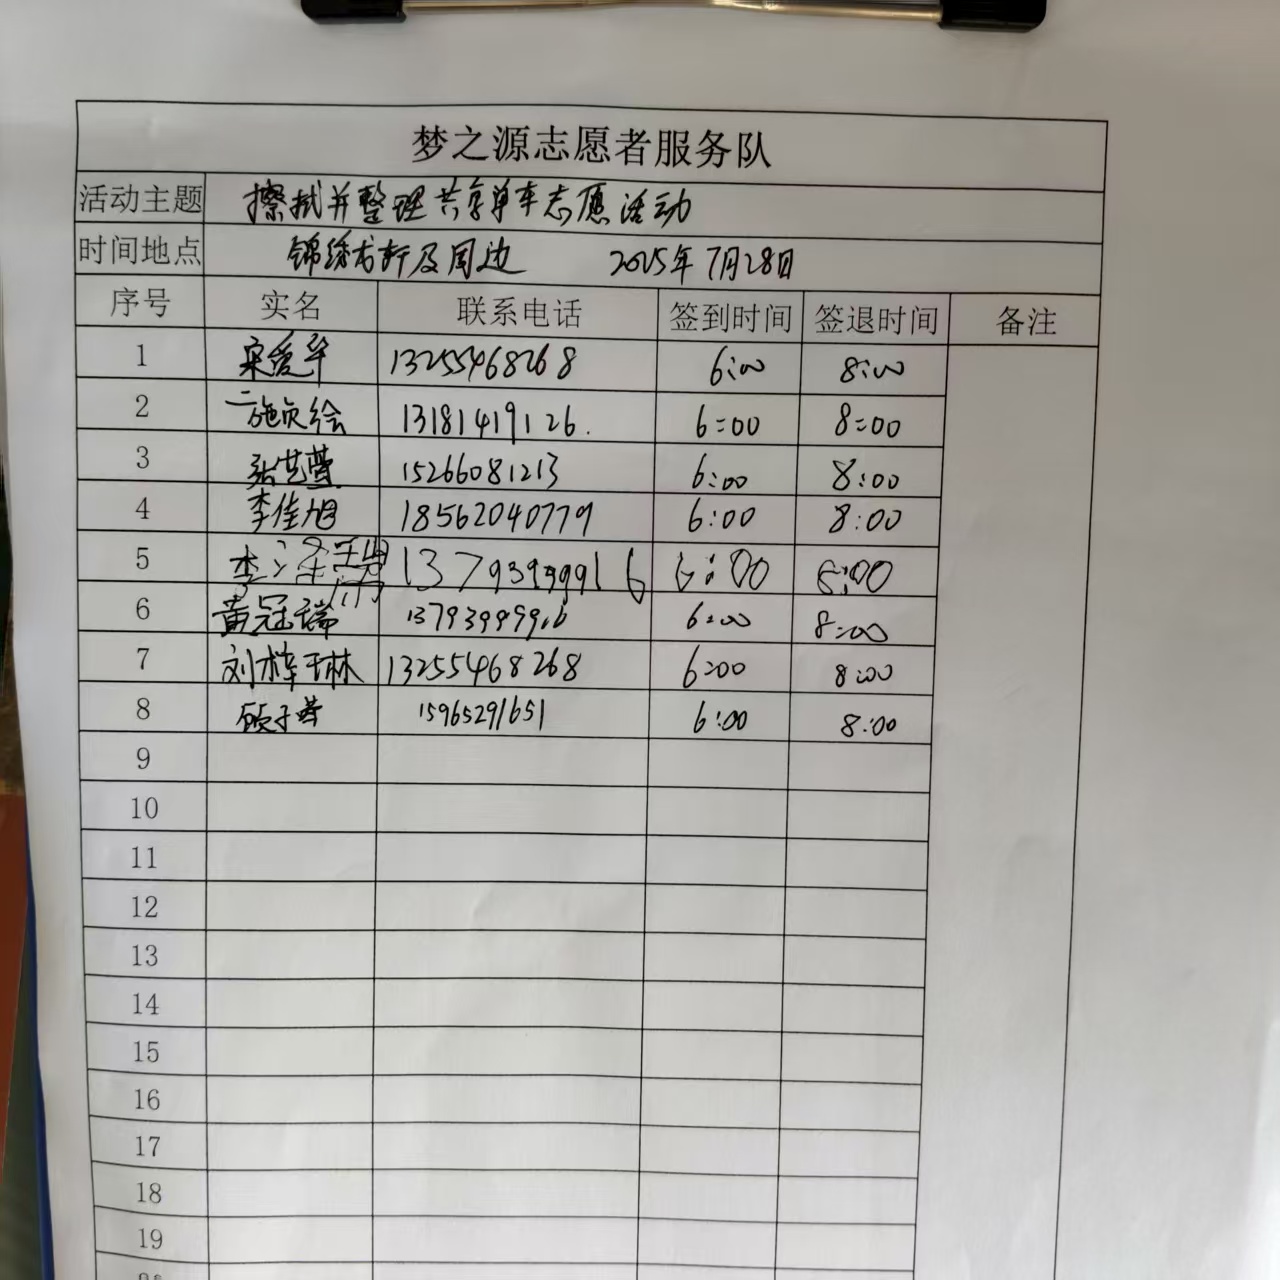 梦之源志愿者服务队
活动主题 擦拭并整理共享单车志愿活动
时间地点 锦绣书轩及周边 2025年7月28日
序号 实名 联系电话 签到时间 签退时间 备注
1 宋爱华 13255468268 6:00 8:00
2 施贞绘 13181419126. 6:00 8:00
3 张艺莹 15266081213 6:00 8:00
4 李佳旭 18562040779 6:00 8:00
5 李 13793999916 6:00 8:00
6 黄冠瑞 13793999916 6:00 8:00
7 刘梓琳 13255468268 6:00 8:00
8 15965291651 6:00 8:00
9
10
11
12
13
14
15
16
17
18
19